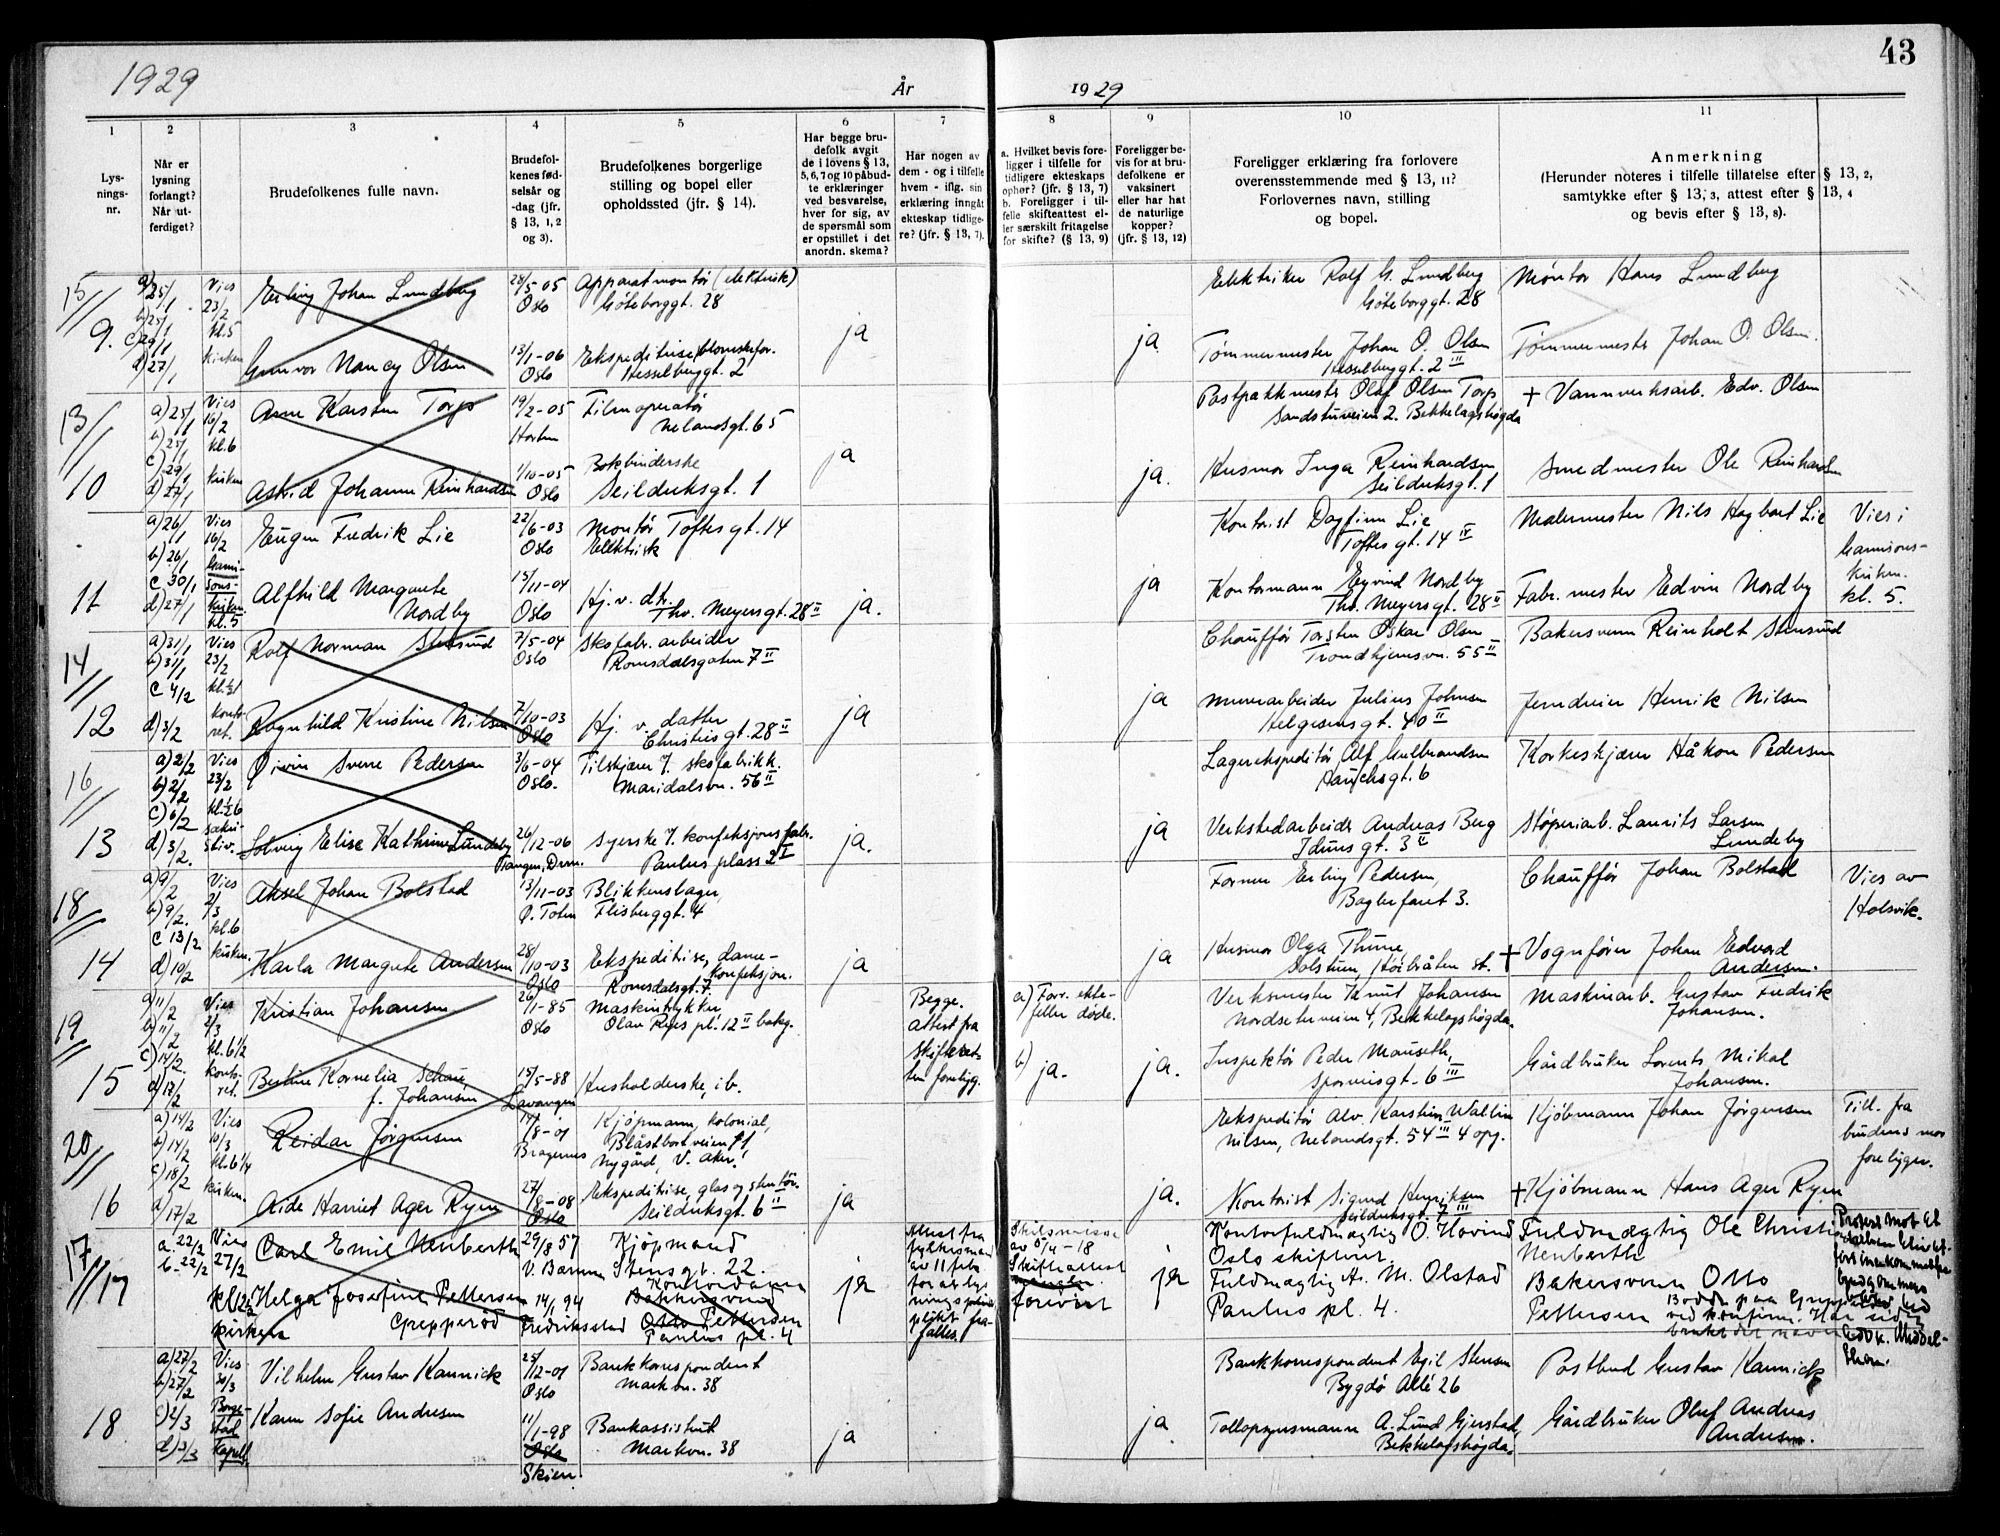 43
1929
År
1929
1
2
3
4
5
6
7
8
9
10
11
Lys-
nings-
nr.
Når er
lysning
forlangt?
Når ut-
ferdiget?
Brudefolkenes fulle navn.
Brudefol-
kenes fød-
selsår og
-dag (jfr.
§ 13, 1, 2
og 3).
Brudefolkenes borgerlige
stilling og bopel eller
opholdssted (jfr. § 14).
Har begge bru-
defolk avgit
de i lovens § 13,
5, 6, 7 og 10 påbud-
te erklæringer
ved besvarelse,
hver for sig, av
de spørsmål som
er opstillet i det
anordn. skema?
Har nogen av
dem - og i tilfelle
hvem - iflg. sin
erklæring inngåt
ekteskap tidlige-
re? (jfr. § 13, 7).
a. Hvilket bevis fore-
ligger i tilfelle for
tidligere ekteskaps
ophør? (jfr. § 13, 7)
b. Foreligger i til-
felle skifteattest el-
ler særskilt fritagelse
for skifte? (§ 13, 9)
Foreligger be-
vis for at bru-
defolkene er
vaksinert
eller har hat
de naturlige
kopper?
(jfr. § 13, 12)
Foreligger erklæring fra forlovere
overensstemmende med § 13, 11?
Forlovernes navn, stilling
og bopel.
Anmerkning
(Herunder noteres i tilfelle tillatelse efter § 13, 2,
samtykke efter § 13, 3, attest efter § 13, 4
og bevis efter § 13, 8).
15
9.
a) 25/1
b) 25/1
c) 29/1
d) 27/1
Vies
23/2
kl. 5
kirken
Erling Johan Lundberg
28/5-05
Oslo
Apparatmontør (elektrisk)
Göteborggt. 28
Elektriker Rolf G. Lundberg
Göteborggt. 28
Montør Hans Lundberg
Gunvor Nancy Olsen
13/1-06
Oslo
Ekspeditrise, blomsterfor.
Hesselberggt. 2
ja
ja
Tømmermester Johan O. Olsen
Hesselberggt. 2 III
Tømmermester Johan O. Olsen.
13
10
a) 25/1
b) 25/1
c) 29/1
d) 27/1
Vies
16/2
kl. 6
kirken
Arne Karsten Torp
19/2-05
Horten
Filmoperatør
Nelandsgt. 65
Postpakkmester Olaf Olsen Torp
Sandstuveien 2. Bekkelagshøgda
+ Vannverksarb. Edv. Olsen
Astrid Johanne Reinhardsen
1/10-05
Oslo
Bokbinderske
Seilduksgt. 1
ja
ja.
Husmor Inga Reinhardsen
Seilduksgt. 1
Smedmester Ole Reinhardsen
11
a) 26/1
b) 26/1
c 30/1
d) 27/1
Vies
16/2
Garni-
sons-
kirken
kl. 5
Eugen Fredrik Lie
22/6-03
Oslo
Montør Toftesgt. 14
Elektrisk
Kontorist Dagfinn Lie
Toftesgt. 14 IV
Malermester Nils Hagbart Lie
Vies i
Garnisons-
kirken.
kl. 5.
Alfhild Margrete
Nordby
15/11-04
Oslo
Hj. v. dtr.
Thv. Meyersgt. 28 II
ja.
ja
Kontormann Eyvind Nordby
Thv. Meyersgt. 28 II
Fabr. mester Edvin Nordby
14
12
a) 31/1
b) 31/1
c 4/2
d) 3/2
Vies
23/2
kl. ½1
konto-
ret.
Rolf Norman Stensund
7/5-04
Oslo
Skofabr. arbeider
Romsdalsgaten 7 II
Chauffør Torsten Oskar Olsen
Trondhjemsvn. 55 II
Bakersvenn Reinholt Stensund
Ragnhild Kristine Nilsen
7/10-03
Oslo
Hj. v. datter
Christiesgt. 28 II
ja
ja
Murerarbeider Julius Johnsen
Helgesensgt. 40 II
Jerndreier Henrik Nilsen
16
13
a) 2/2
b) 2/2
c) 6/2
d) 3/2.
Vies
23/2
kl. ½6
sakri-
stiv.
Øivin Sverre Pedersen
3/6-04
Oslo.
Tilskjærer i. skofabrikk.
Maridalsvn. 56 II
Lagerekspeditør Alf Gulbrandsen
Hauchsgt. 6
Korkeskjærer Håkon Pedersen
Solveig Elise Kathrine Lundeby
26/12-06
Tangen, Drm.
Syerske i. konfeksjonsfabr.
Paulus plass 2 I
ja.
ja
Verkstedarbeider Andreas Berg
Idunsgt. 3 II
Støperiarb. Laurits Larsen
Lundeby
18
14
a) 9/2
b) 9/2.
c 13/2
d) 10/2
Vies
2/3
kl. 6
kirken.
Aksel Johan Bolstad
13/11-03
Ø. Toten
Blikkenslager,
Flisberggt. 4
Former Erling Pedersen,
Baglerfaret 3.
Chauffør Johan Bolstad
Vies av
Holsvik.
Karla Margrete Andersen
28/10-03
Oslo
Ekspeditrise, dame-
konfeksjon.
Romsdalsgt. 7
ja
ja
Husmor Olga Thune,
Solstuen, Herbråten st.
+ Vognfører Johan Edvard
Andersen.
19
15
a) 11/2
b) 11/2
c) 14/2.
d) 17/2
Vies
2/3
kl. 6½
konto-
ret.
Kristian Johansen
26/1-85
Oslo
Maskintrykker
Olav Ryes pl. 12 II bakg.
Begge.
Attest fra
skifteret-
ten forelig.
a) Forr. ekte-
feller døde.
Verksmester Knut Johansen
Nordseterveien 4, Bekkelagshøgda.
Maskinarb. Gustav Fredrik
Johansen.
Bertine Kornelia Schau,
f. Johansen
15/5-88
Lavangen
Husholderske, ib.
b) ja.
ja.
Inspektør Peder Mauseth,
Sporveisgt. 6 III
Gårdbruker Lorents Mikal
Johansen.
20
16
a) 14/2
b) 14/2
c) 18/2
d) 17/2
Vies
10/3
kl. 6¼
kirken.
Reidar Jørgensen
14/8-01
Bragernes
Kjøpmann, kolonial,
Blåsbortveien 11
Nygård, V. Aker.
Ekspeditør Alv. Karstein Wallin
Nilsen, Nelandsgt. 54 III 4 opg.
Kjøbmann Johan Jørgensen
Till. fra
brudens mor
foreligger.
Aide Harriet Ager Ryen
27/8-08
Oslo
Ekspeditrise, glas og stentøi.
Seilduksgt. 6 II
ja
ja.
Kontorist Sigurd Henriksen
Seilduksgt. 7 III
+ Kjøbmann Hans Ager Ryen
17
17
a. 22/2
b. 22/2
Vies
27/2
kl 12½
kirken
Carl Emil Neuberth
29/8 57
V. Bærum
Kjøpmand
Stensgt. 22.
Attest fra
fylkesmand
av 11 febr
for at lys-
ningsplikt
frafalles
Skilsmisse
av 5/4-18
Skifteattest
forevist
Kontorfuldmægtig O. Hovind
Oslo skifterett.
Fuldmægtig Ole Christian
Neuberth
Helga Josefine Pettersen
Grepperød
14/1 94
Fredriksstad
Kontordame
Bakkersvend
Otto Pettersen
Paulus pl. 4
ja
ja
Fuldmægtig A. M. Olstad
Paulus pl. 4.
Bakersvenn Otto
Pettersen
Bodde paa Grepperød
ved konfirm. Har siden
bruket det navn
18
a) 27/2
b) 27/2
c) 2/3
d) 3/3
Vies
30/3
Borge-
stad
kapell
Vilhelm Gustav Kannick
25/12-01
Oslo
Bankkorrespondent
Markvn. 38
Bankkorrespondent Egil Stensen
Bygdø Allé 26
Postbud Gustav Kannick
Karen Sofie Andresen
11/1-98
Oslo
Skien
Bankassistent
Markvn. 38
ja
ja.
Tolloppsynsmann A. Lund Gjerstad,
Bekkelagshøgda.
Gårdbruker Oluf Andreas
Andresen.